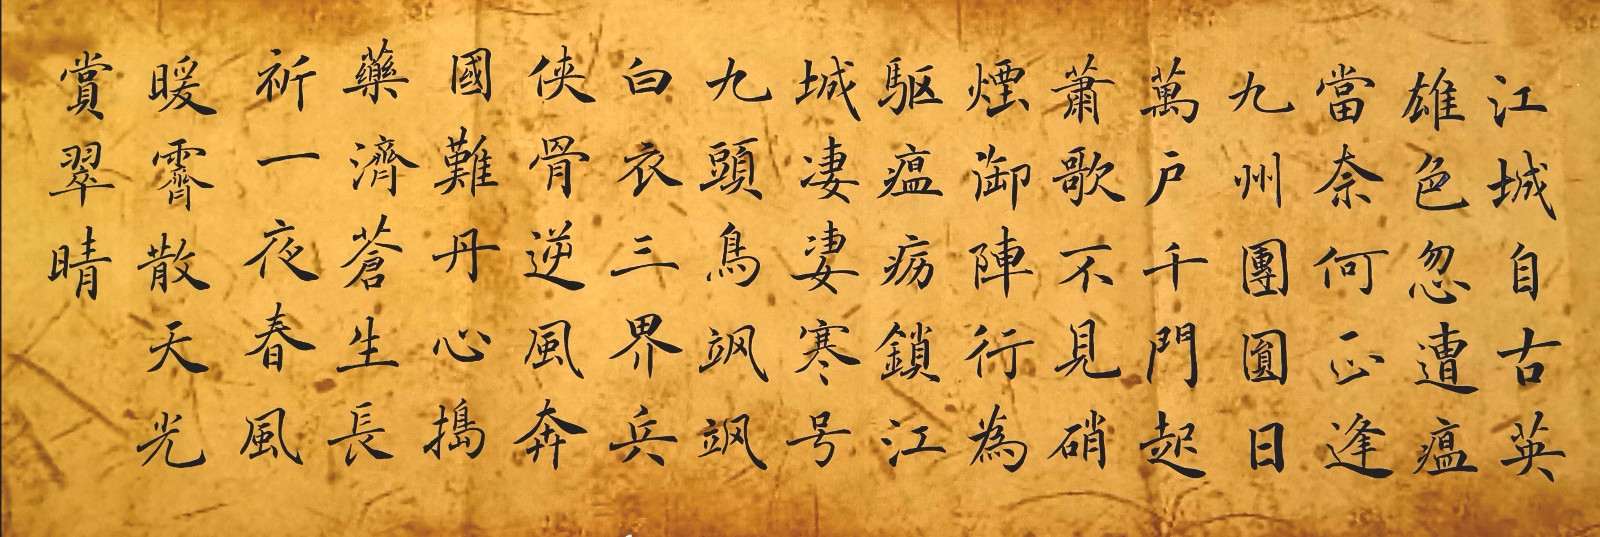 江城自古英
雄色忽遭瘟
當奈何正逢
九州團圓日
萬戶千門起
蕭歌不見硝
煙御陣行為
驅瘟疬鎖江
城凄凄寒号
九頭鳥飒飒
白衣三界兵
俠骨逆風奔
國難丹心搗
藥濟蒼生長
祈一夜春風
暖霽散天光
賞翠晴